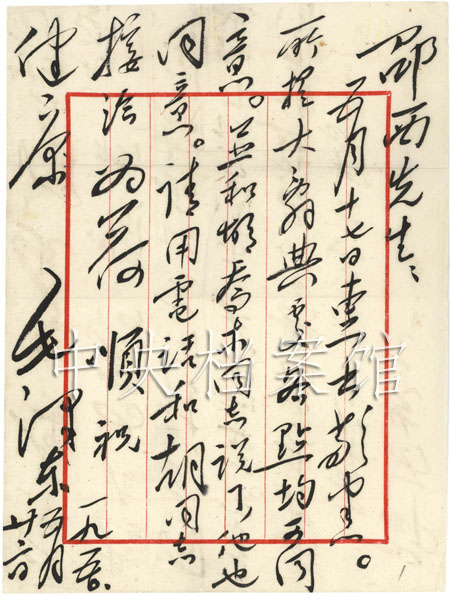 邵西先生：
五月十七日惠书敬悉。
所提大辞典處各點均可同
意。並和胡喬木同志说了他也
同意。请用電话和胡同志
接洽为荷 顺祝
健康
毛泽东
一九五〇、
五月
廿二日
中央档案馆